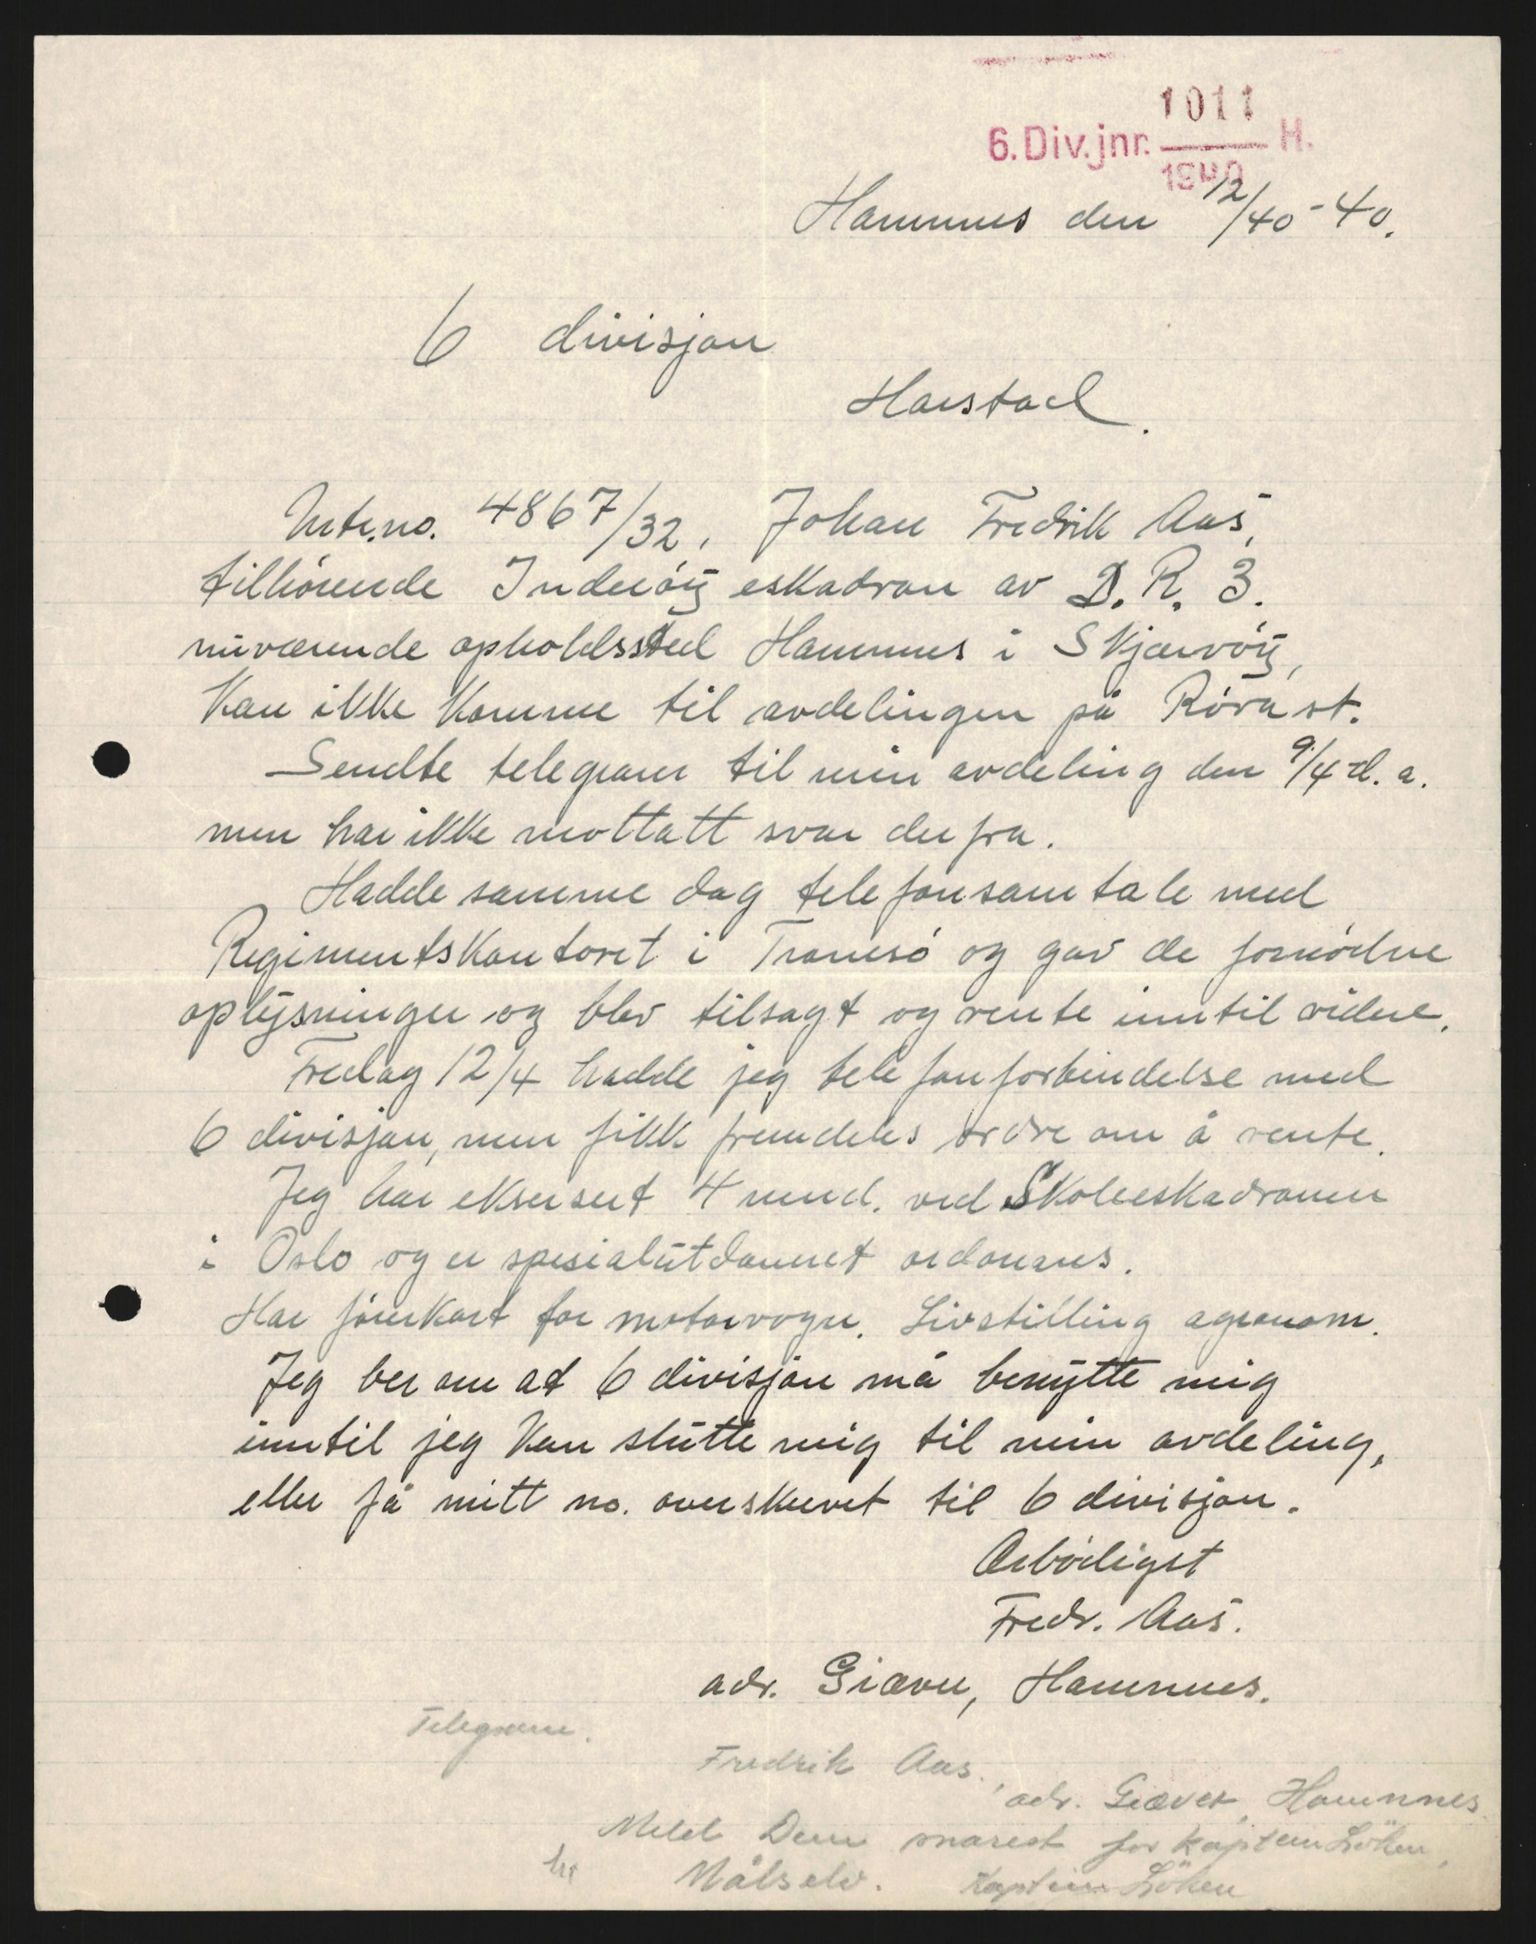 1011
6. Div. jnr. H.
1940
Hamnnes den 12/40-40.
6 divisjon
Harstad.
Mtr.no. 4867/32, Johan Fredrik Aas,
tilhörende Inderöy eskadron av D. R. 3.
nuværende opholdssted Hamnnes i Skjærvöy,
kan ikke komme til avdelingen på Röra st.
Sendte telegram til min avdeling den 9/4 d. a.
men har ikke mottatt svar derfra.
Hadde samme dag telefonsamtale med
Regimentskontoret i Tromsö og gav de fornödne
oplysninger og blev tilsagt og vente inntil videre.
Fredag 12/4 hadde jeg telefonforbindelse med
6 divisjon, men fikk fremdeles ordre om å vente.
Jeg har eksersert 4 mnd. ved Skoleeskadronen
i Oslo og er spesialutdannet ordonans.
Har förerkort for motorvogn. Livstilling agronom.
Jeg ber om at 6 divisjon må benytte mig
inntil jeg kan slutte mig til min avdeling,
eller få mitt no. overskrevet til 6 divisjon.
Ærbödigst
Fredr. Aas.
adr. Giæver, Hamnnes.
Telegram.
Fredrik Aas,
adr. Giæver, Hamnnes
Meld Dem snarest for kaptein Löken,
Målselv. Kaptein Löken